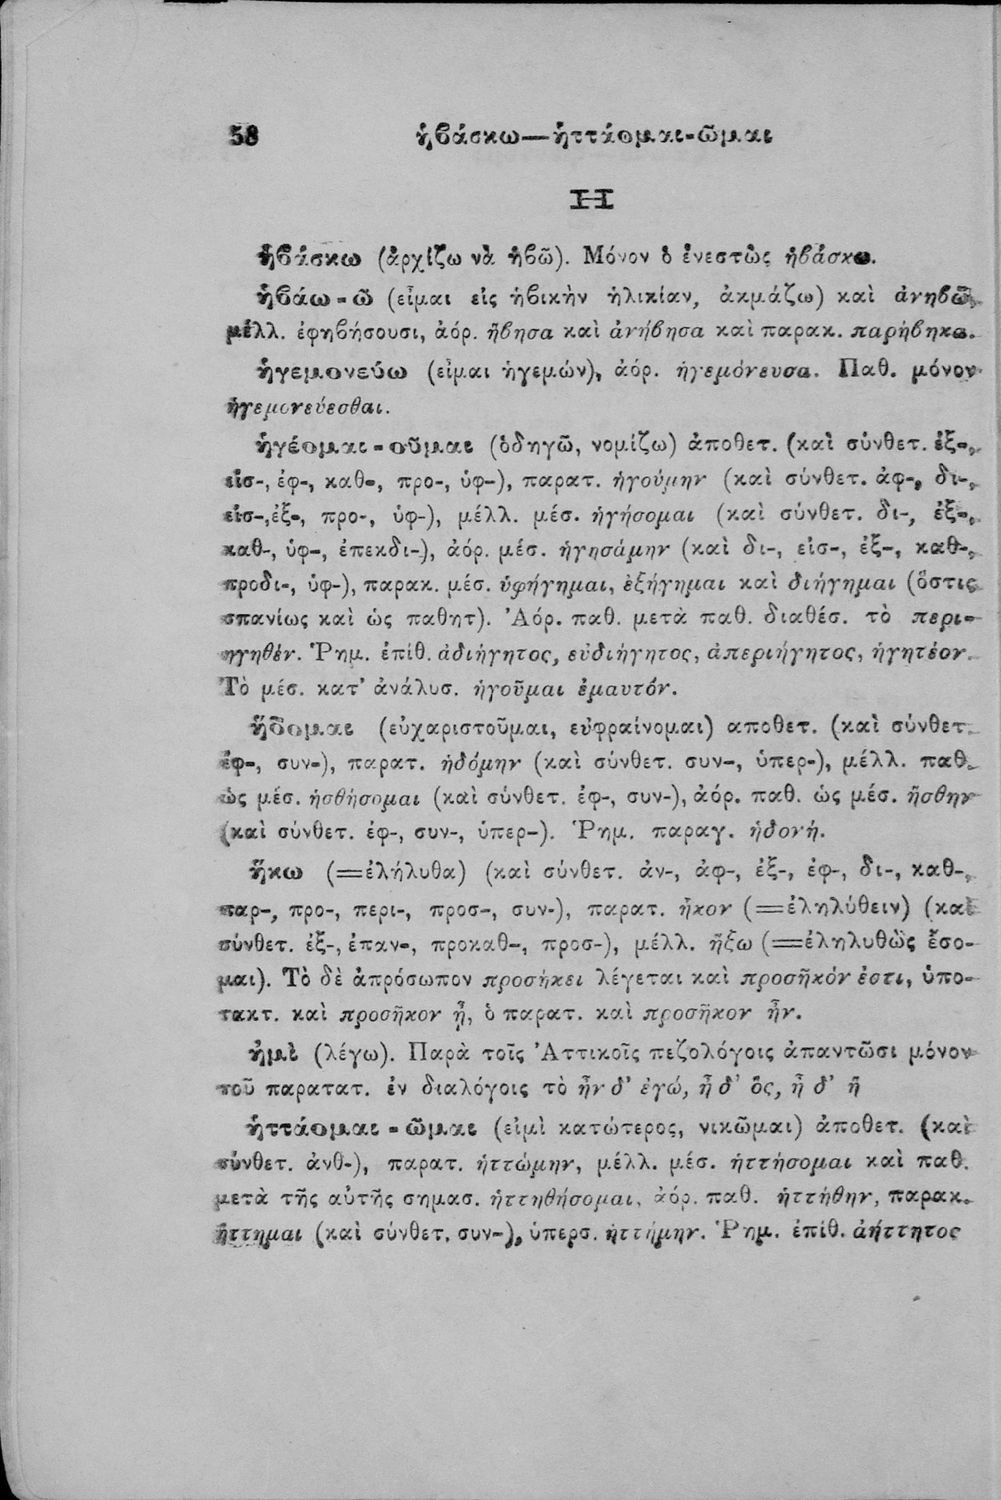 58 ἡβάσκω—ἡττάομαι-ῶμαι
Η
ἡβάσκω (ἀρχίζω νὰ ἡβῶ). Μόνον ὁ ἐνεστὼς ἡβάσκω.
ἡβάω-ῶ (εἶμαι εἰς ἡβικὴν ἡλικίαν, ἀκμάζω) καὶ ἀνηβῶ,
μέλλ. ἐφηβήσουσι, ἀόρ. ἥβησα καὶ ἀνήβησα καὶ παρακ. παρήβηκα.
ἡγεμονεύω (εἶμαι ἡγεμών), ἀόρ. ἡγεμόνευσα. Παθ. μόνον
ἡγεμονεύεσθαι.
ἡγέομαι-οῦμαι (ὁδηγῶ, νομίζω) ἀποθετ. (καὶ σύνθετ. ἐξ-,
εἰσ-, ἐφ-, καθ-, προ-, ὑφ-), παρατ. ἡγούμην (καὶ σύνθετ. ἀφ-, δι-,
εἰσ-,ἐξ-, προ-, ὑφ-), μέλλ. μέσ. ἡγήσομαι (καὶ σύνθετ. δι-, ἐξ-,
καθ-, ὑφ-, ἐπεκδι-), ἀόρ. μέσ. ἡγησάμην (καὶ δι-, εἰσ-, ἐξ-, καθ-,
προδι-, ὑφ-), παρακ. μέσ. ὑφήγημαι, ἐξήγημαι καὶ διήγημαι (ὅστις
σπανίως καὶ ὡς παθητ). Ἀόρ. παθ. μετὰ παθ. διαθέσ. τὸ περι-
ηγηθέν. Ῥημ. ἐπίθ. ἀδιήγητος, εὐδιήγητος, ἀπεριήγητος, ἡγητέον.
Τὸ μέσ. κατ' ἀνάλυσ. ἡγοῦμαι ἐμαυτόν.
ἥδομαι (εὐχαριστοῦμαι, εὐφραίνομαι) αποθετ. (καὶ σύνθετ.
ἐφ-, συν-), παρατ. ἡδόμην (καὶ σύνθετ. συν-, ὑπερ-), μέλλ. παθ.
ὡς μέσ. ἡσθήσομαι (καὶ σύνθετ. ἐφ-, συν-), ἀόρ. παθ. ὡς μέσ. ἥσθην
(καὶ σύνθετ. ἐφ-, συν-, ὑπερ-). Ῥημ. παραγ. ἡδονή.
ἥκω (=ἐλήλυθα) (καὶ σύνθετ. ἀν-, ἀφ-, ἐξ-, ἐφ-, δι-, καθ-,
παρ-, προ-, περι-, προσ-, συν-), παρατ. ἧκον (=ἐληλύθειν) (καὶ
σύνθετ. ἐξ-, ἐπαν-, προκαθ-, προσ-), μέλλ. ἥξω (=ἐληλυθὼς ἔσο-
μαι). Τὸ δὲ ἀπρόσωπον προσήκει λέγεται καὶ προσῆκόν ἐστι, ὑπο-
τακτ. καὶ προσῆκον ᾖ, ὁ παρατ. καὶ προσῆκον ἦν.
ἠμὶ (λέγω). Παρὰ τοῖς Ἀττικοῖς πεζολόγοις ἀπαντῶσι μόνον
τοῦ παρατατ. ἐν διαλόγοις τὸ ἦν δ' ἐγώ, ἦ δ' ὅς, ἦ δ' ἥ
ἡττάομαι-ῶμαι (εἰμὶ κατώτερος, νικῶμαι) ἀποθετ. (καὶ
σύνθετ. ἀνθ-), παρατ. ἡττώμην, μέλλ. μέσ. ἡττήσομαι καὶ παθ.
μετὰ τῆς αὐτῆς σημασ. ἡττηθήσομαι, ἀόρ. παθ. ἡττήθην, παρακ.
ἥττημαι (καὶ σύνθετ, συν-), ὑπερσ. ἡττήμην. Ῥημ. ἐπίθ. ἀήττητος